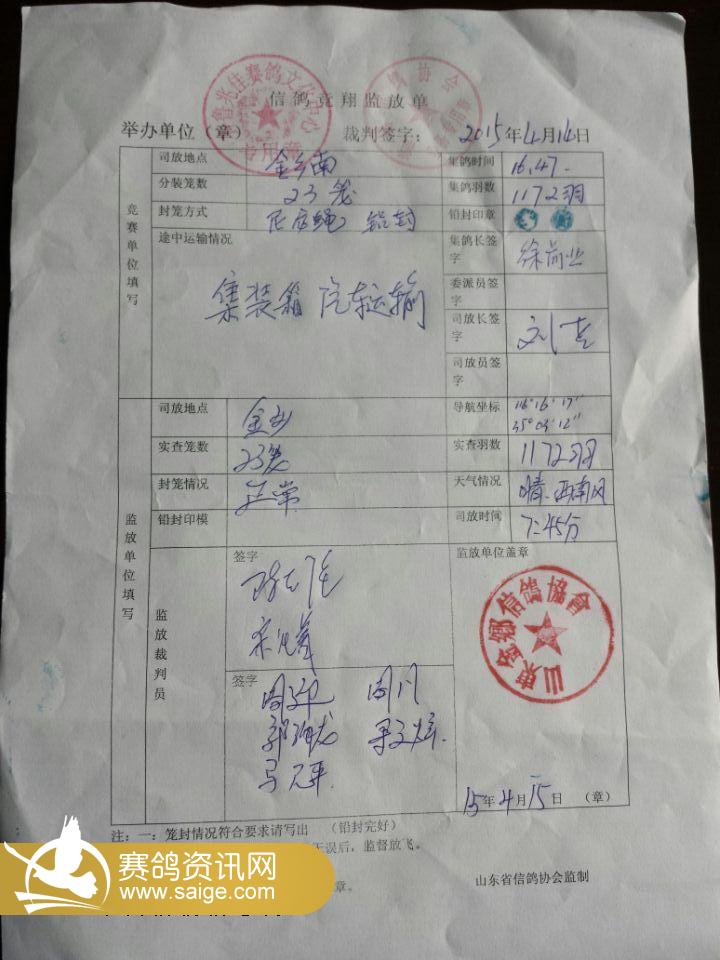 信鸽竞翔监放单
举办单位（章） 裁判签字： 2015年4月14日
竞赛单位填写
司放地点 金乡南 集鸽时间 16.47.
分装笼数 23笼 集鸽羽数 1172羽
封笼方式 铅封 铅封印章
途中运输情况 集鸽长签字
集装箱 汽车运输
委派员签字
司放长签字
司放员签字
监放单位填写
司放地点 金乡 导航坐标 116°16′17″ 35°03′12″
实查笼数 23笼 实查羽数 1172羽
封笼情况 正常 天气情况 晴.西南风
铅封印模 司放时间 7:45分
监放裁判员
签字
监放单位盖章
山東金鄉信鴿協會
签字
周迎 周川
15年4月15日 （章）
注：一：笼封情况符合要求请写出 （铅封完好）
无误后，监督放飞。
章。
山东省信鸽协会监制
专用章
赛鸽资讯网
www.saige.com